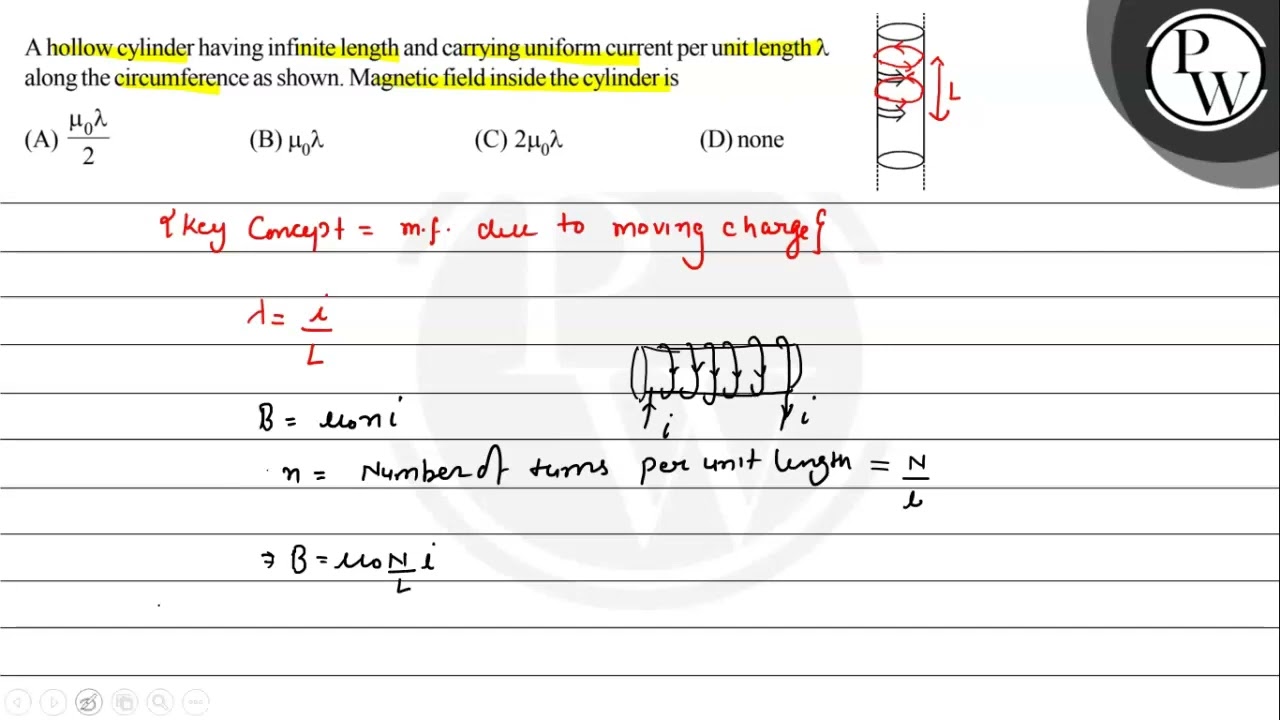 A hollow cylinder having infinite length and carrying uniform current per unit length λ
along the circumference as shown. Magnetic field inside the cylinder is
(A) μ₀λ/2 (B) μ₀λ (C) 2μ₀λ (D) none
L
P
W
{Key Concept = m.f. due to moving charge}
λ = i/L
B = μ₀ni
i i
n = Number of turns per unit length = N/l
⇒ B = μ₀ N/L i